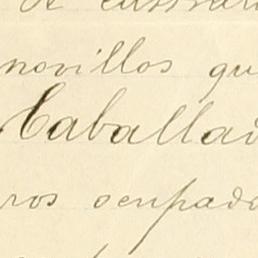 novillos qu
Caballad
ros ocupado